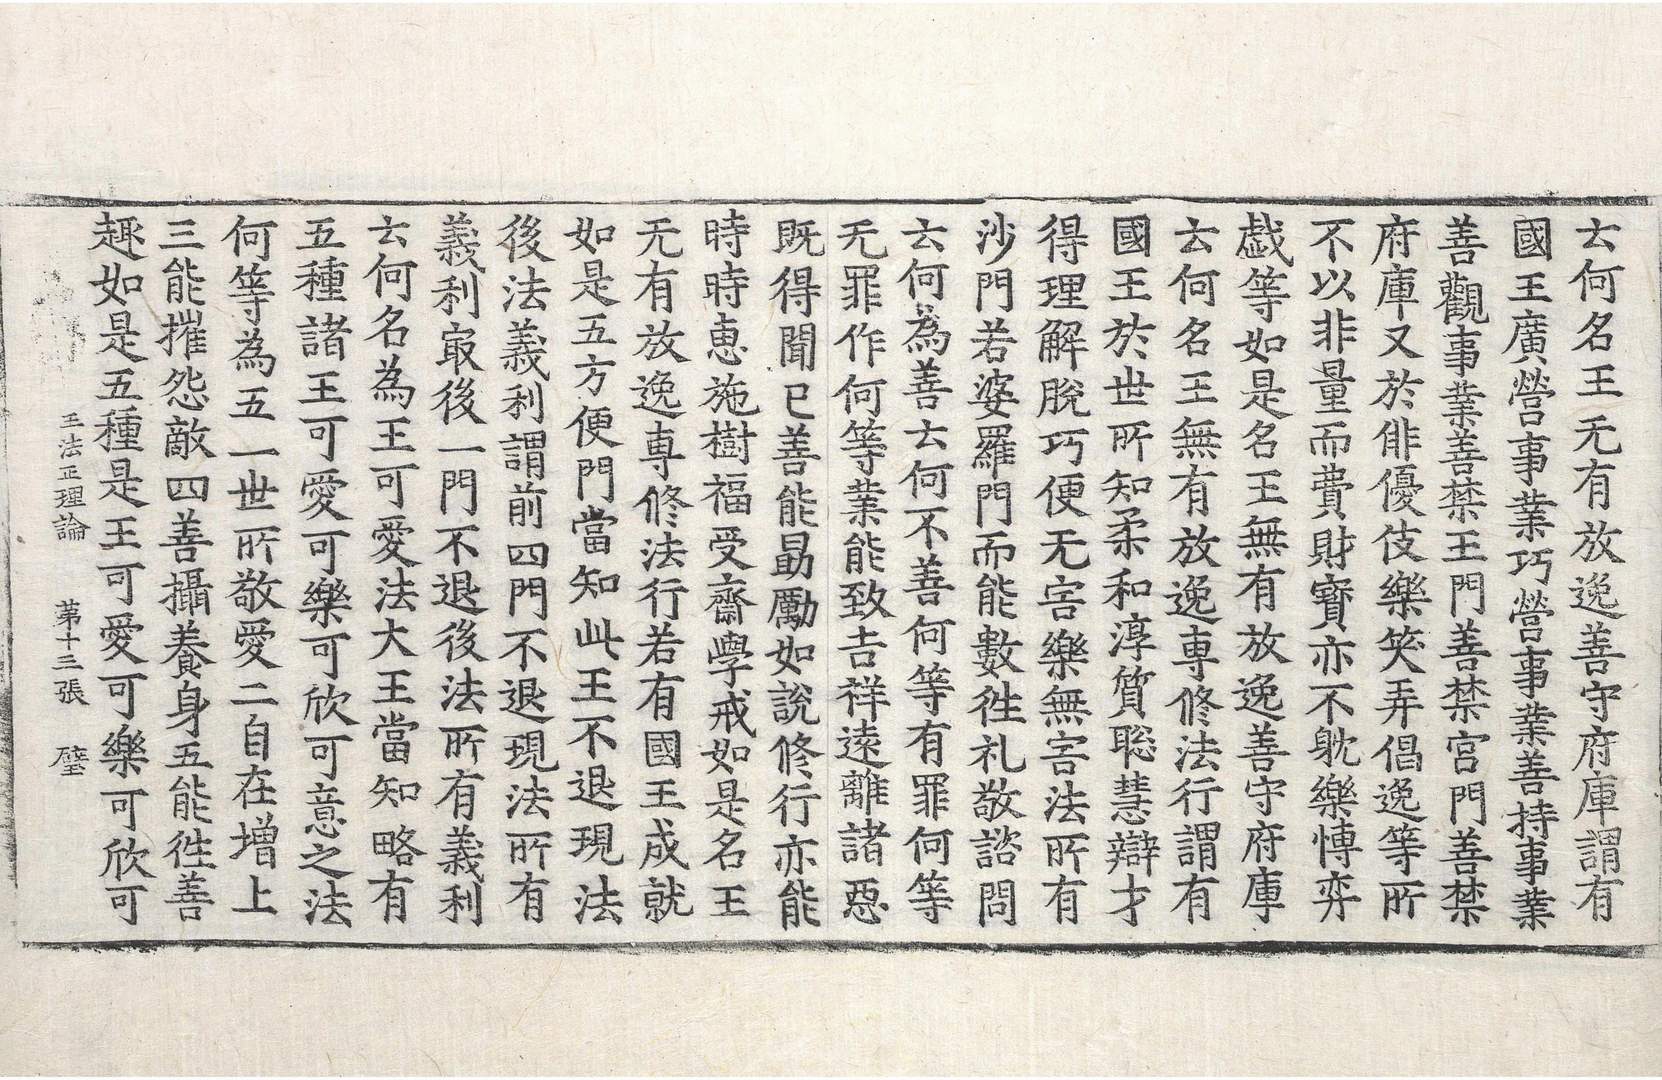 云何名王无有放逸善守府庫謂有
國王廣營事業巧營事業善持事業
善觀事業善禁王門善禁宮門善禁
府庫又於俳優伎樂笑弄倡逸等所
不以非量而費財寶亦不躭樂博弈
戱等如是名王無有放逸善守府庫
云何名王無有放逸専修法行謂有
國王於世所知柔和淳質聡慧辯才
得理解脫巧便无害樂無害法所有
沙門若婆羅門而能數徃礼敬諮問
云何為善云何不善何等有罪何等
无罪作何等業能致吉祥遠離諸惡
既得聞已善能勗勵如說修行亦能
時時恵施樹福受齋學戒如是名王
无有放逸専修法行若有國王成就
如是五方便門當知此王不退現法
後法義利謂前四門不退現法所有
義利㝡後一門不退後法所有義利
云何名為王可愛法大王當知略有
五種諸王可愛可樂可欣可意之法
何等為五一世所敬愛二自在增上
三能摧怨敵四善攝養身五能徃善
趣如是五種是王可愛可樂可欣可
王法正理論 苐十三張 璧